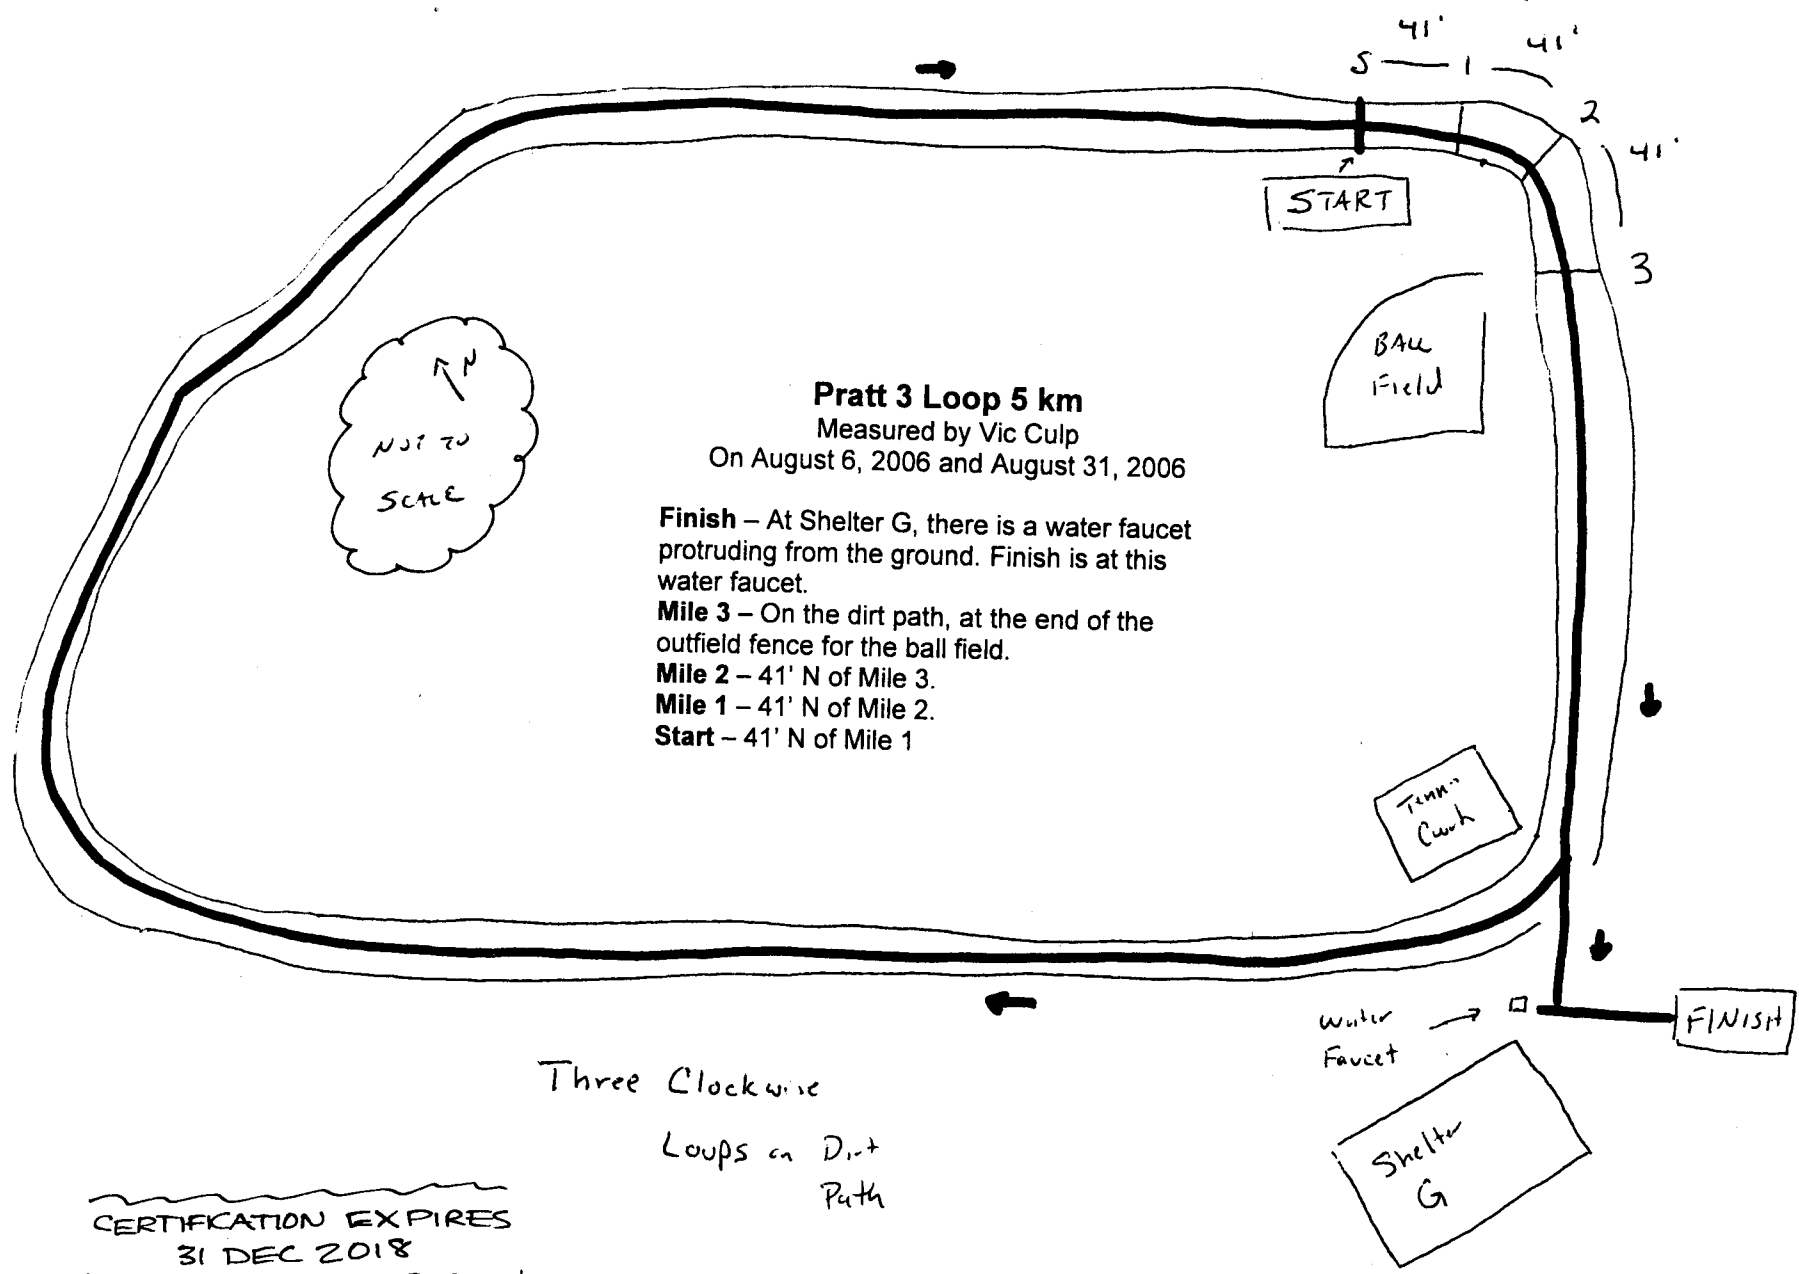 41'
41'
S 1
2
41'
START
3
N
NOT TO
SCALE
BALL
Field
Pratt 3 Loop 5 km
Measured by Vic Culp
On August 6, 2006 and August 31, 2006
Finish – At Shelter G, there is a water faucet
protruding from the ground. Finish is at this
water faucet.
Mile 3 – On the dirt path, at the end of the
outfield fence for the ball field.
Mile 2 – 41' N of Mile 3.
Mile 1 – 41' N of Mile 2.
Start – 41' N of Mile 1
Water
Faucet
FINISH
Three Clockwise
Loops on Dirt
Path
Shelter
G
CERTIFICATION EXPIRES
31 DEC 2018